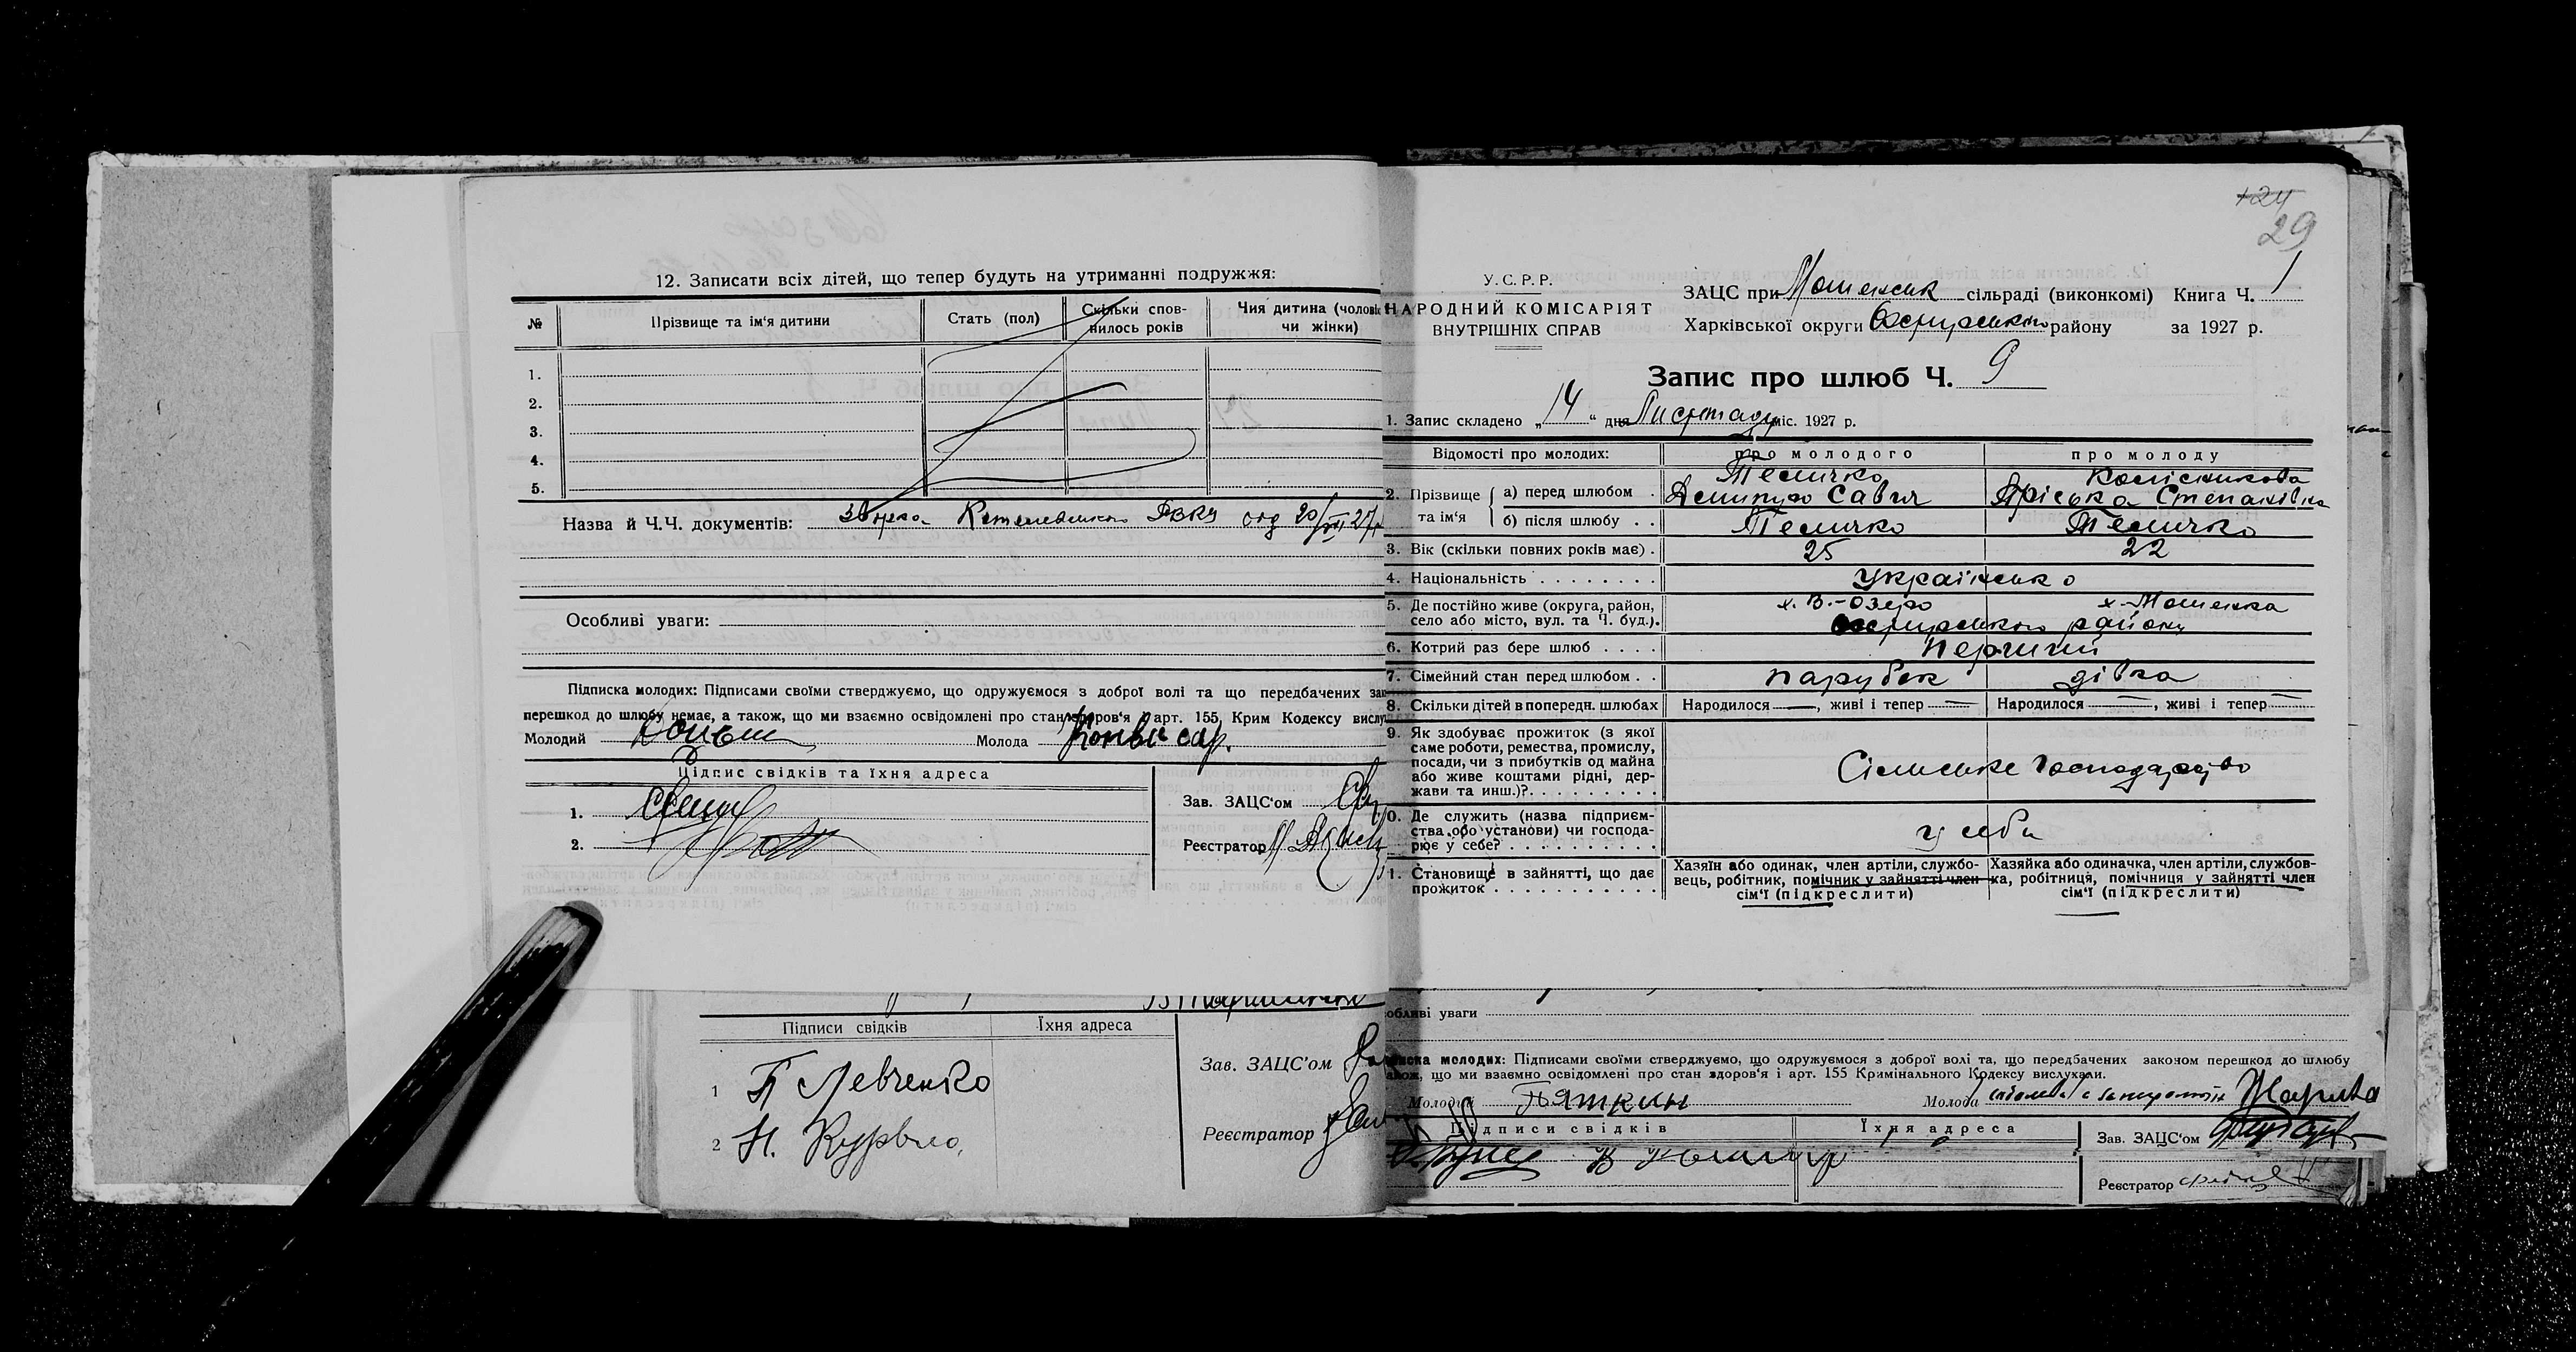 12. Записати всіх дітей, що тепер будуть на утриманні подружжя:
№ Прізвище та ім'я дитини Стать (пол) Скільки спов-нилось років Чия дитина (чоловік чи жінки)
1.
2.
3.
4.
5.
Назва й Ч.Ч. документів: од 20/VII 27
Особливі уваги:
Підписка молодих: Підписами своїми стверджуємо, що одружуємося з доброї волі та що передбачених
перешкод до шлюбу немає, а також, що ми взаємно освідомлені про стан здоров'я арт. 155 Крим Кодексу вислу
Молодий Молода
Підпис свідків та їхня адреса
1.
2.
Зав. ЗАЦС'ом
Реєстратор
Підписи свідків Їхня адреса
1 П Левченко
2 Н.
Зав. ЗАЦС'ом
Реєстратор
+24
29
У.С.Р.Р.
НАРОДНИЙ КОМІСАРІЯТ
ВНУТРІШНІХ СПРАВ
ЗАЦС при Мошенськ сільраді (виконкомі) Книга Ч. 1
Харківської округи Охтирського району за 1927 р.
Запис про шлюб Ч. 9
1. Запис складено „14“ дня Листпаду міс. 1927 р.
Відомості про молодих: про молодого про молоду
2. Прізвище та ім'я
а) перед шлюбом . Теличко Савич Колісникова Пріська Степанівна
б) після шлюбу . . Теличко Теличко
3. Вік (скільки повних років має) . 25 22
4. Національність . . . . . . . . Українсько
5. Де постійно живе (округа, район, х. В.-Озеро х-Мошенка
село або місто, вул. та Ч. буд.). Охтирського району
6. Котрий раз бере шлюб . . . . Перший
7. Сімейний стан перед шлюбом . . парубок дівка
8. Скільки дітей в попередн. шлюбах Народилося —, живі і тепер — Народилося —, живі і тепер —
9. Як здобуває прожиток (з якої
саме роботи, ремества, промислу,
посади, чи з прибутків од майна
або живе коштами рідні, дер-
жави та инш.)?. . . . . . . . . Сільське господарство
0. Де служить (назва підприєм-
ства або установи) чи господа-
рює у себе? . . . . . . . . . . у себе
1. Становище в зайнятті, що дає
прожиток . . . . . . . . . . .
Хазяїн або одинак, член артіли, службо-
вець, робітник, помічник у зайнятті член
сім'ї (підкреслити)
Хазяйка або одиначка, член артіли, службов-
ка, робітниця, помічниця у зайнятті член
сім'ї (підкреслити)
обливі уваги
писка молодих: Підписами своїми стверджуємо, що одружуємося з доброї волі та, що передбачених законом перешкод до шлюбу
акож, що ми взаємно освідомлені про стан здоров'я і арт. 155 Кримінального Кодексу вислухали.
Молодий Пяткин Молода
Підписи свідків Їхня адреса
Зав. ЗАЦС'ом
Реєстратор